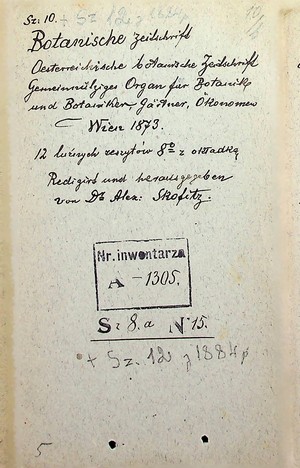 Sz: 10.
+ Sz. 12 z 1884 p
Botanische Zeitschrift
Oesterreichische botanische Zeitschrift
Gemeinnütziges Organ für Botanik
und Botaniker, Gärtner, Ökonomen
Wien 1873.
12 luźnych zeszytów 8º z okładką
Redigirt und herausgegeben
von Dr Alex: Skofitz.
Nr. inwentarza
A - 1305.
Sz 8.a N 15.
+ Sz. 12 z 1884 p
5